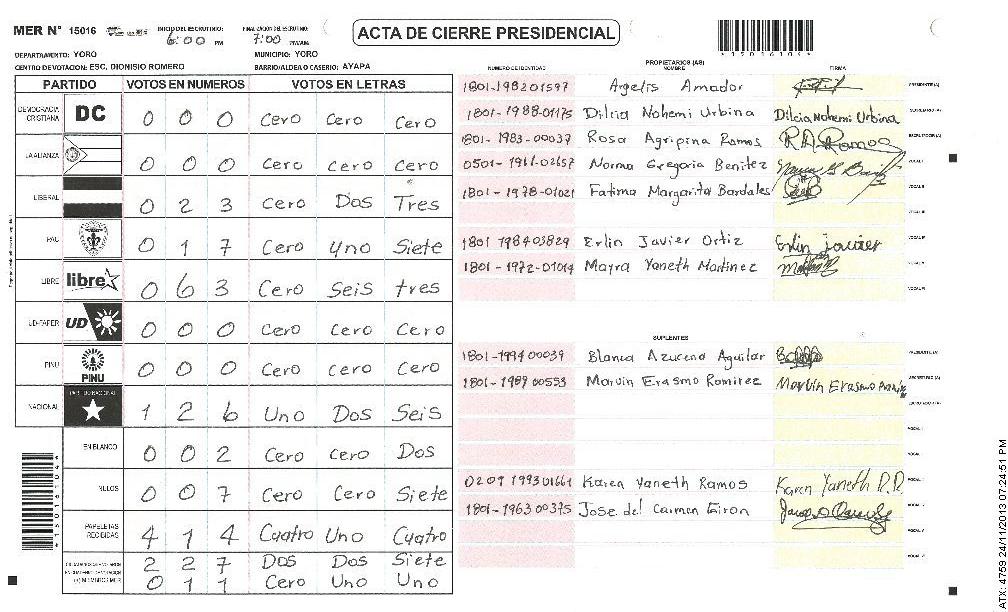 MER N° 15016
INICIO DEL ESCRUTINIO: 6:00 PM
FINALIZACIÓN DEL ESCRUTINIO: 7:00 PM/AM.
ACTA DE CIERRE PRESIDENCIAL
DEPARTAMENTO: YORO
MUNICIPIO: YORO
CENTRO DE VOTACION: ESC. DIONISIO ROMERO
BARRIO/ALDEA O CASERIO: AYAPA
PARTIDO VOTOS EN NUMEROS VOTOS EN LETRAS
DEMOCRACIA CRISTIANA DC 0 0 0 Cero Cero Cero
LA ALIANZA 0 0 0 Cero Cero Cero
LIBERAL 0 2 3 Cero Dos Tres
PAC 0 1 7 Cero Uno Siete
LIBRE libre 0 6 3 Cero Seis tres
UD-FAPER UD 0 0 0 Cero Cero Cero
PINU PINU 0 0 0 Cero Cero Cero
NACIONAL PARTIDO NACIONAL 1 2 6 Uno Dos Seis
EN BLANCO 0 0 2 Cero Cero Dos
NULOS 0 0 7 Cero Cero Siete
PAPELETAS RECIBIDAS 4 1 4 Cuatro Uno Cuatro
2 2 7 Dos Dos Siete
(+) MIEMBROS MER 0 1 1 Cero Uno Uno
PROPIETARIOS (AS)
NUMERO DE IDENTIDAD NOMBRE FIRMA
1801-198201597 Argelis Amador PRESIDENTE (A)
1801-1988-01175 Dilcia Nohemi Urbina Dilcia Nohemi Urbina SECRETARIO (A)
1801-1983-00037 Rosa Agripina Ramos R.A. Ramos ESCRUTADOR (A)
0501-1961-02657 Norma Gregoria Benitez VOCAL I
1801-1978-01021 Fatima Margarita Bardales VOCAL II
VOCAL III
1801 198403829 Erlin Javier Ortiz Erlin Javier VOCAL IV
1801-1972-01014 Mayra Yaneth Martinez VOCAL V
VOCAL VI
SUPLENTES
1801-1994 00039 Blanca Azucena Aguilar PRESIDENTE (A)
1801-1989 00553 Marvin Erasmo Ramirez Marvin Erasmo Ramirez SECRETARIO (A)
ESCRUTADOR (A)
VOCAL I
VOCAL II
0209 199301661 Karen Yaneth Ramos Karen Yaneth R.R.
1801-1963 00375 Jose del Carmen Giron VOCAL IV
VOCAL V
VOCAL VI
ATX: 4759 24/11/2013 07:24:51 PM